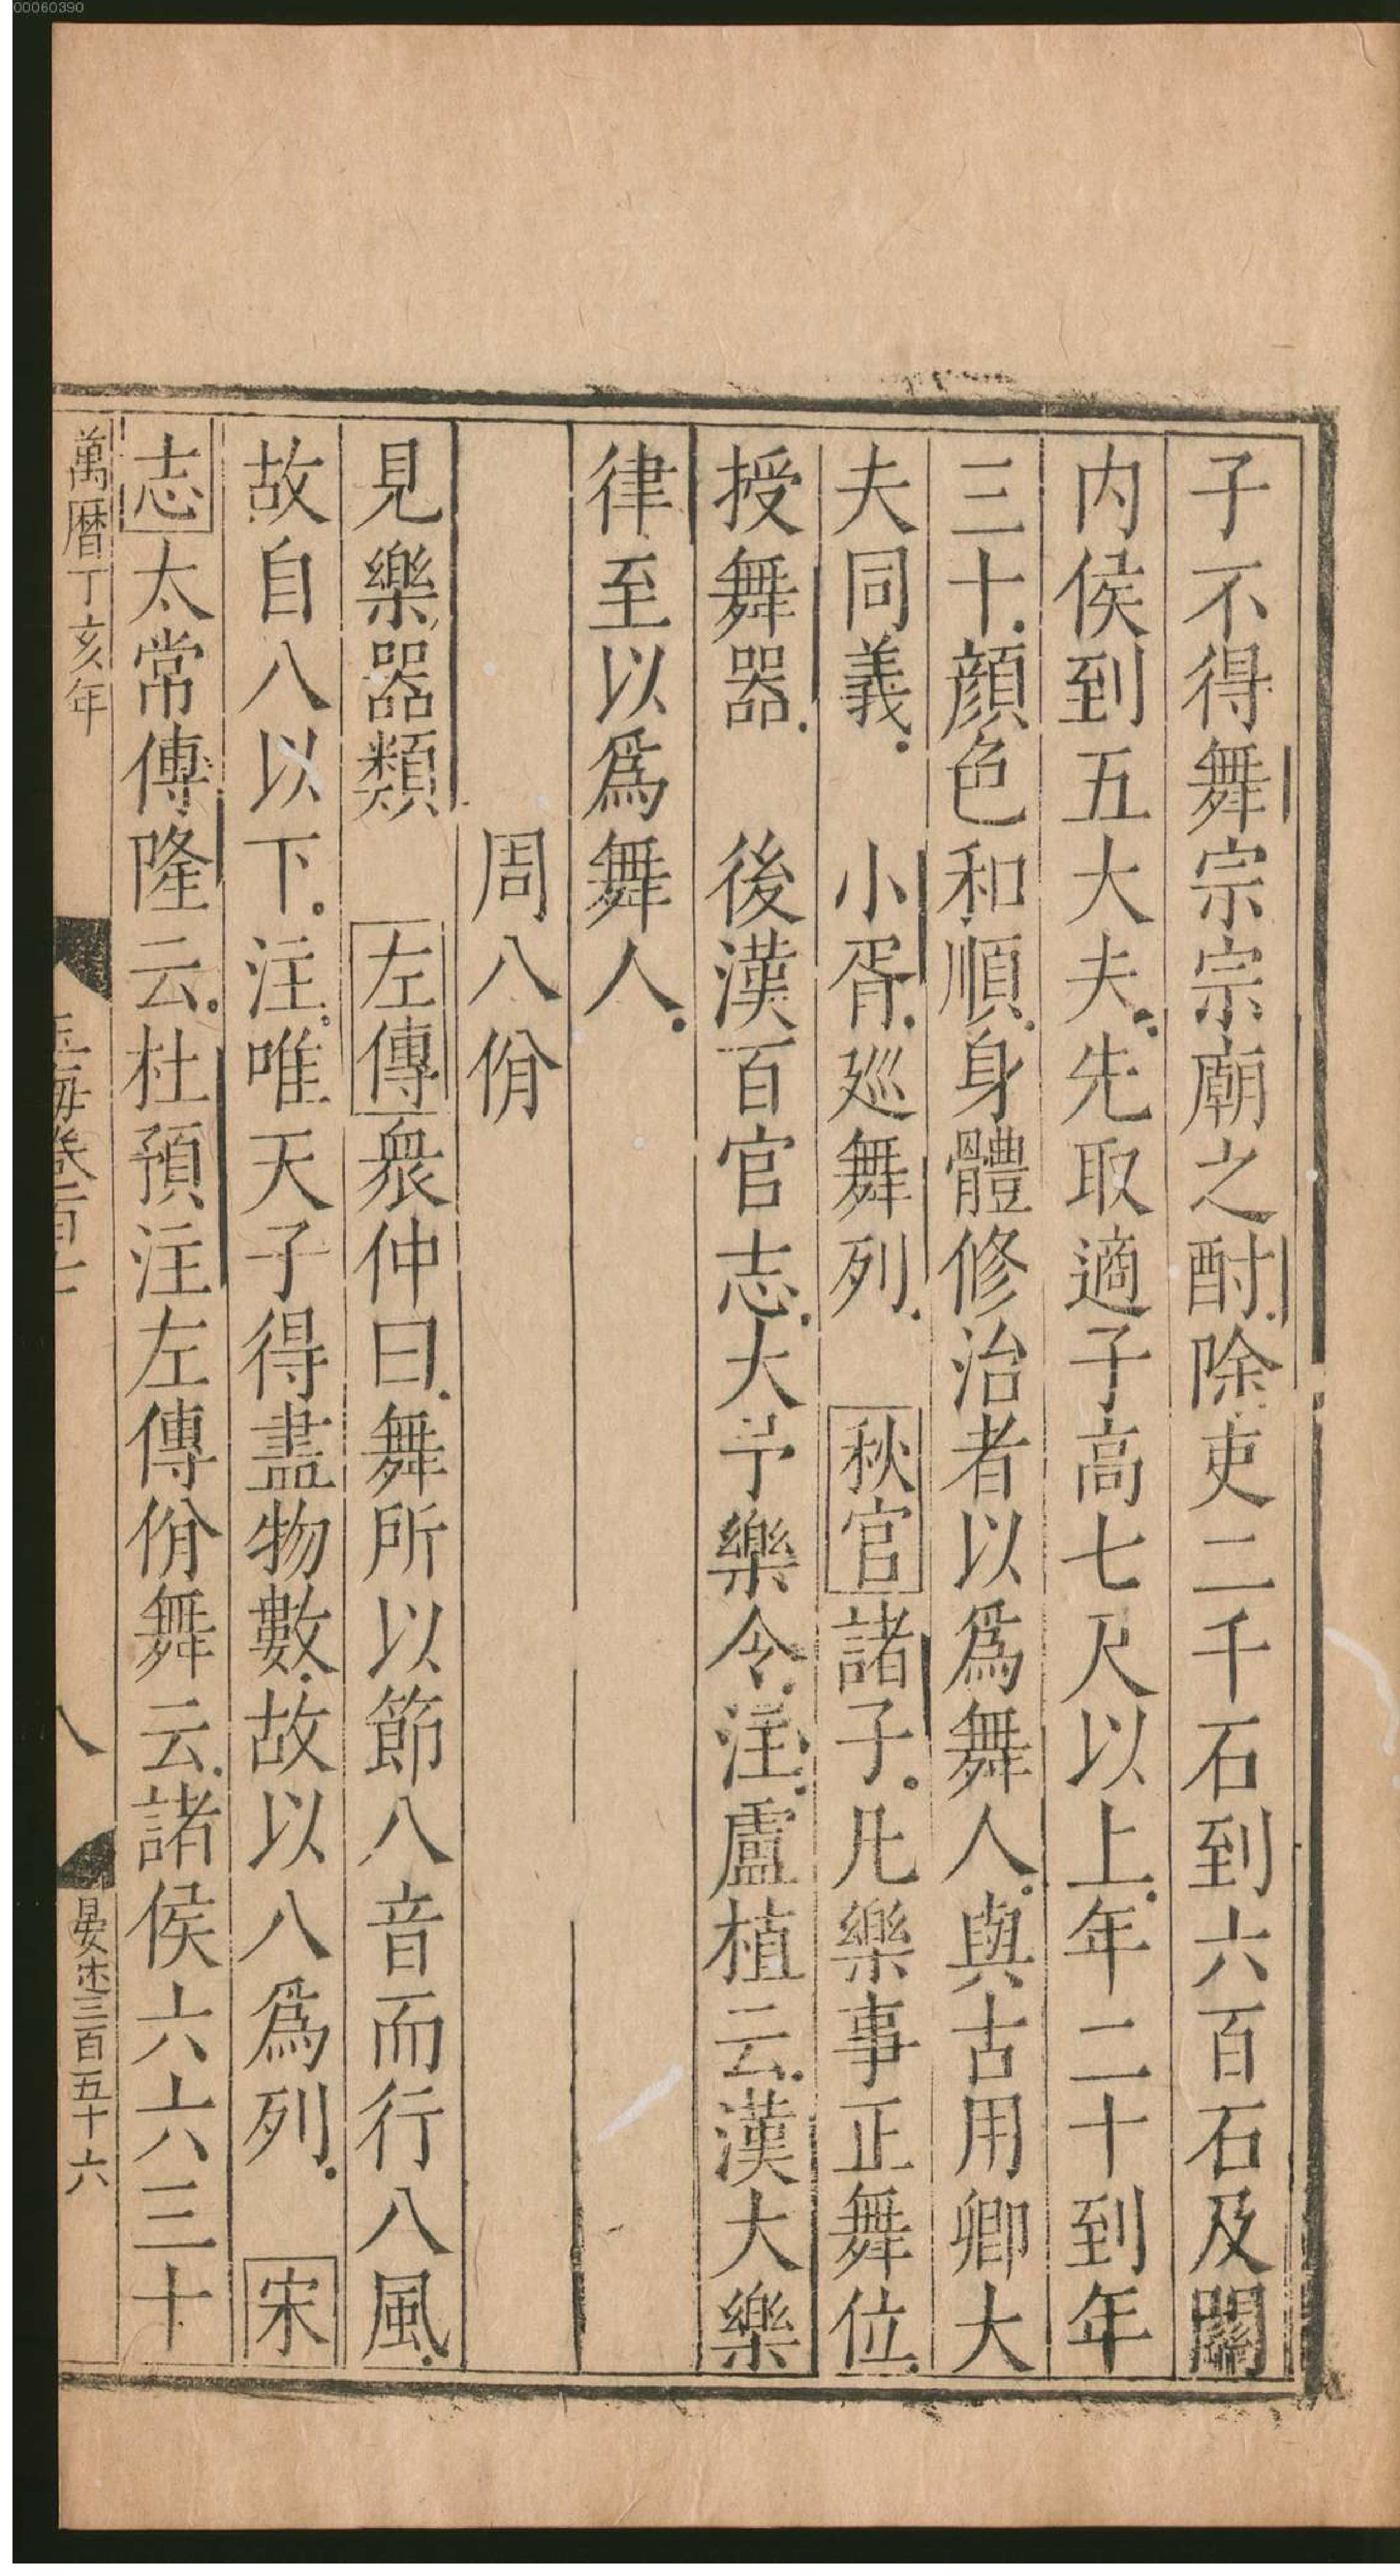 00060390
子不得舞宗宗廟之酎除吏二千石到六百石及關
内侯到五大夫先取適子高七尺以上年二十到年
三十顏色和順身體修治者以爲舞人與古用卿大
夫同義　小胥廵舞列　秋官諸子凡樂事正舞位
授舞器　後漢百官志大予樂令注盧植云漢大樂
律至以爲舞人
周八佾
見樂器類　左傳衆仲曰舞所以節八音而行八風
故自八以下注唯天子得盡物數故以八爲列　宋
志太常傅隆云杜預注左傳佾舞云諸侯六六三十
萬曆丁亥年
玉海卷一百七
八
三百五十六